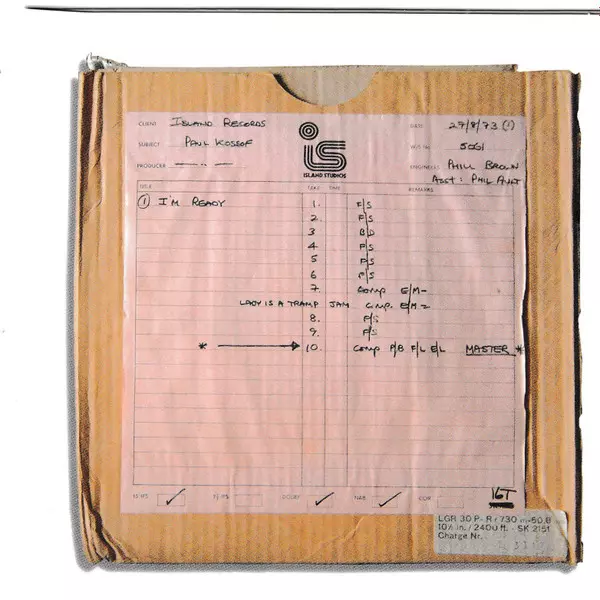 CLIENT ISLAND RECORDS
DATE 29/8/73 (1)
SUBJECT PAUL KOSSOF
5061
PRODUCER
ENGINEERS PHILL BROWN
ASST: PHIL AULT
iS
ISLAND STUDIOS
TITLE TAKE TIME REMARKS
① I'M READY 1. F/S
2. F/S
3 B/D
4. F/S
5 F/S
6 F/S
7. COMP E/M-
LADY IS A TRAMP JAM COMP. E/M-
8. F/S
9. F/S
* → 10. COMP P/B F/L E/L MASTER *
15 IPS ✓ DOLBY ✓ NAB ✓ CCIR 16T
LGR 30 P
10½ in. / 2400 ft. - SK 2151
Charge Nr.